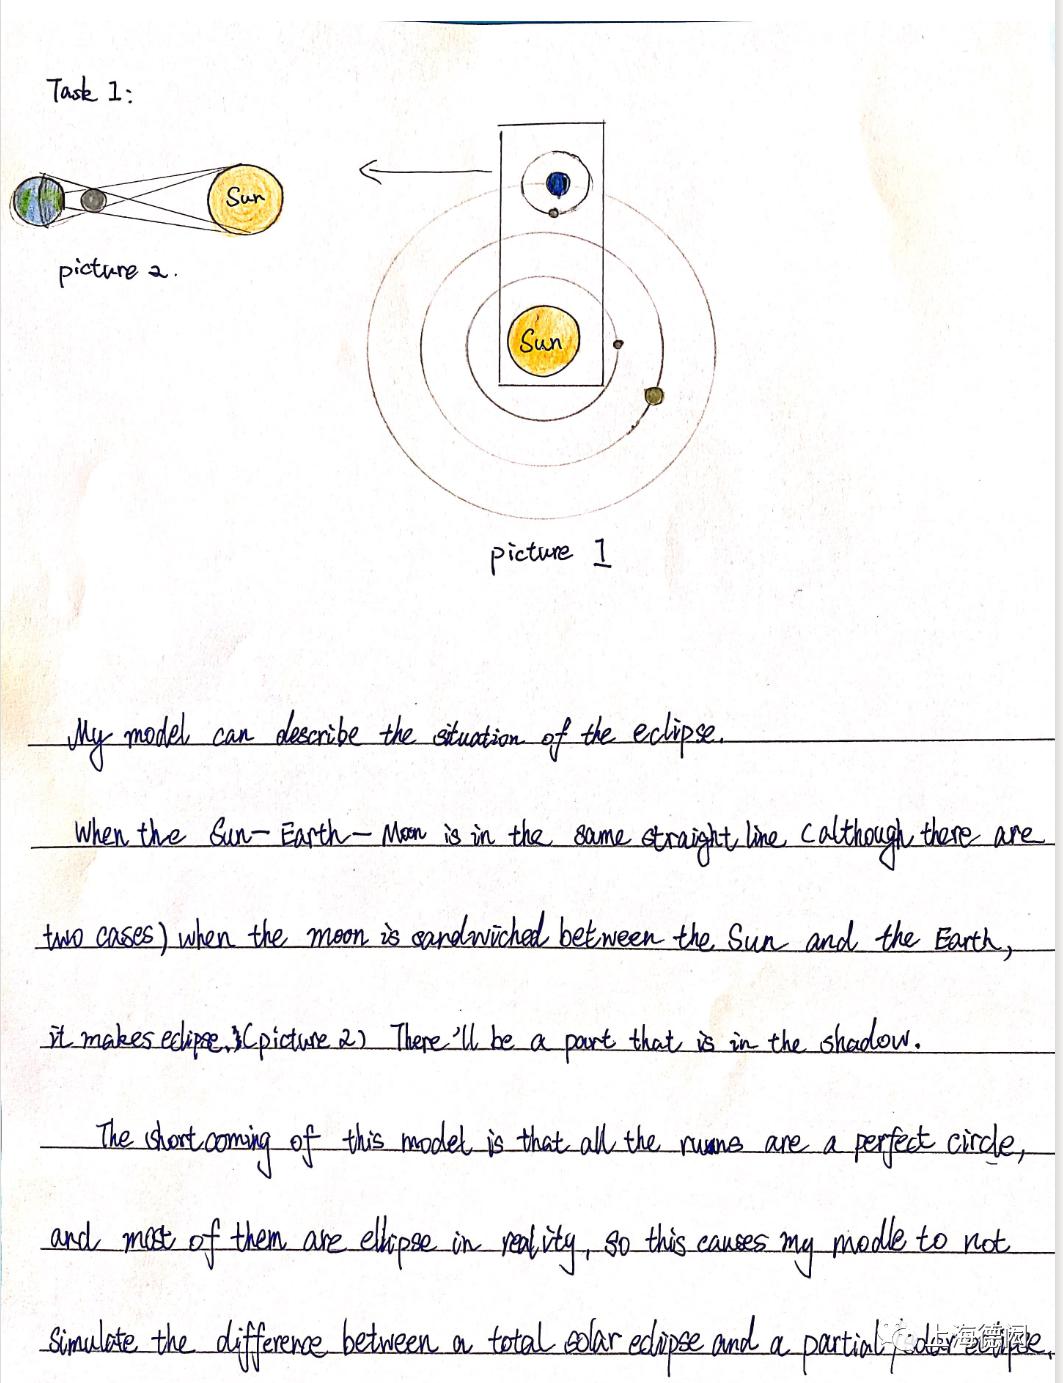 Task 1:
Sun
picture 2.
Sun
picture 1
My model can describe the situation of the eclipse.
When the Sun-Earth-Moon is in the same straight line (although there are
two cases) when the moon is sandwiched between the Sun and the Earth,
it makes eclipse. (picture 2) There'll be a part that is in the shadow.
The shortcoming of this model is that all the are a perfect circle,
and most of them are ellipse in reality, so this causes my modle to not
simulate the difference between a total solar eclipse and a partial solar eclipse.
上海德闳